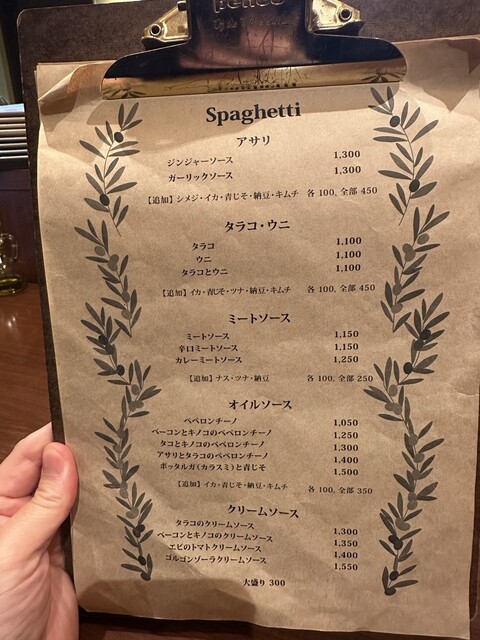 penco
Spaghetti
アサリ
ジンジャーソース 1,300
ガーリックソース 1,300
【追加】シメジ・イカ・青じそ・納豆・キムチ 各 100, 全部 450
タラコ・ウニ
タラコ 1,100
ウニ 1,100
タラコとウニ 1,100
【追加】イカ・青じそ・ツナ・納豆・キムチ 各 100, 全部 450
ミートソース
ミートソース 1,150
辛口ミートソース 1,150
カレーミートソース 1,250
【追加】ナス・ツナ・納豆 各 100, 全部 250
オイルソース
ペペロンチーノ 1,050
ベーコンとキノコのペペロンチーノ 1,250
タコとキノコのペペロンチーノ 1,300
アサリとタラコのペペロンチーノ 1,400
ボッタルガ(カラスミ)と青じそ 1,500
【追加】イカ・青じそ・納豆・キムチ 各 100, 全部 350
クリームソース
タラコのクリームソース 1,300
ベーコンとキノコのクリームソース 1,350
エビのトマトクリームソース 1,400
ゴルゴンゾーラクリームソース 1,550
大盛り 300